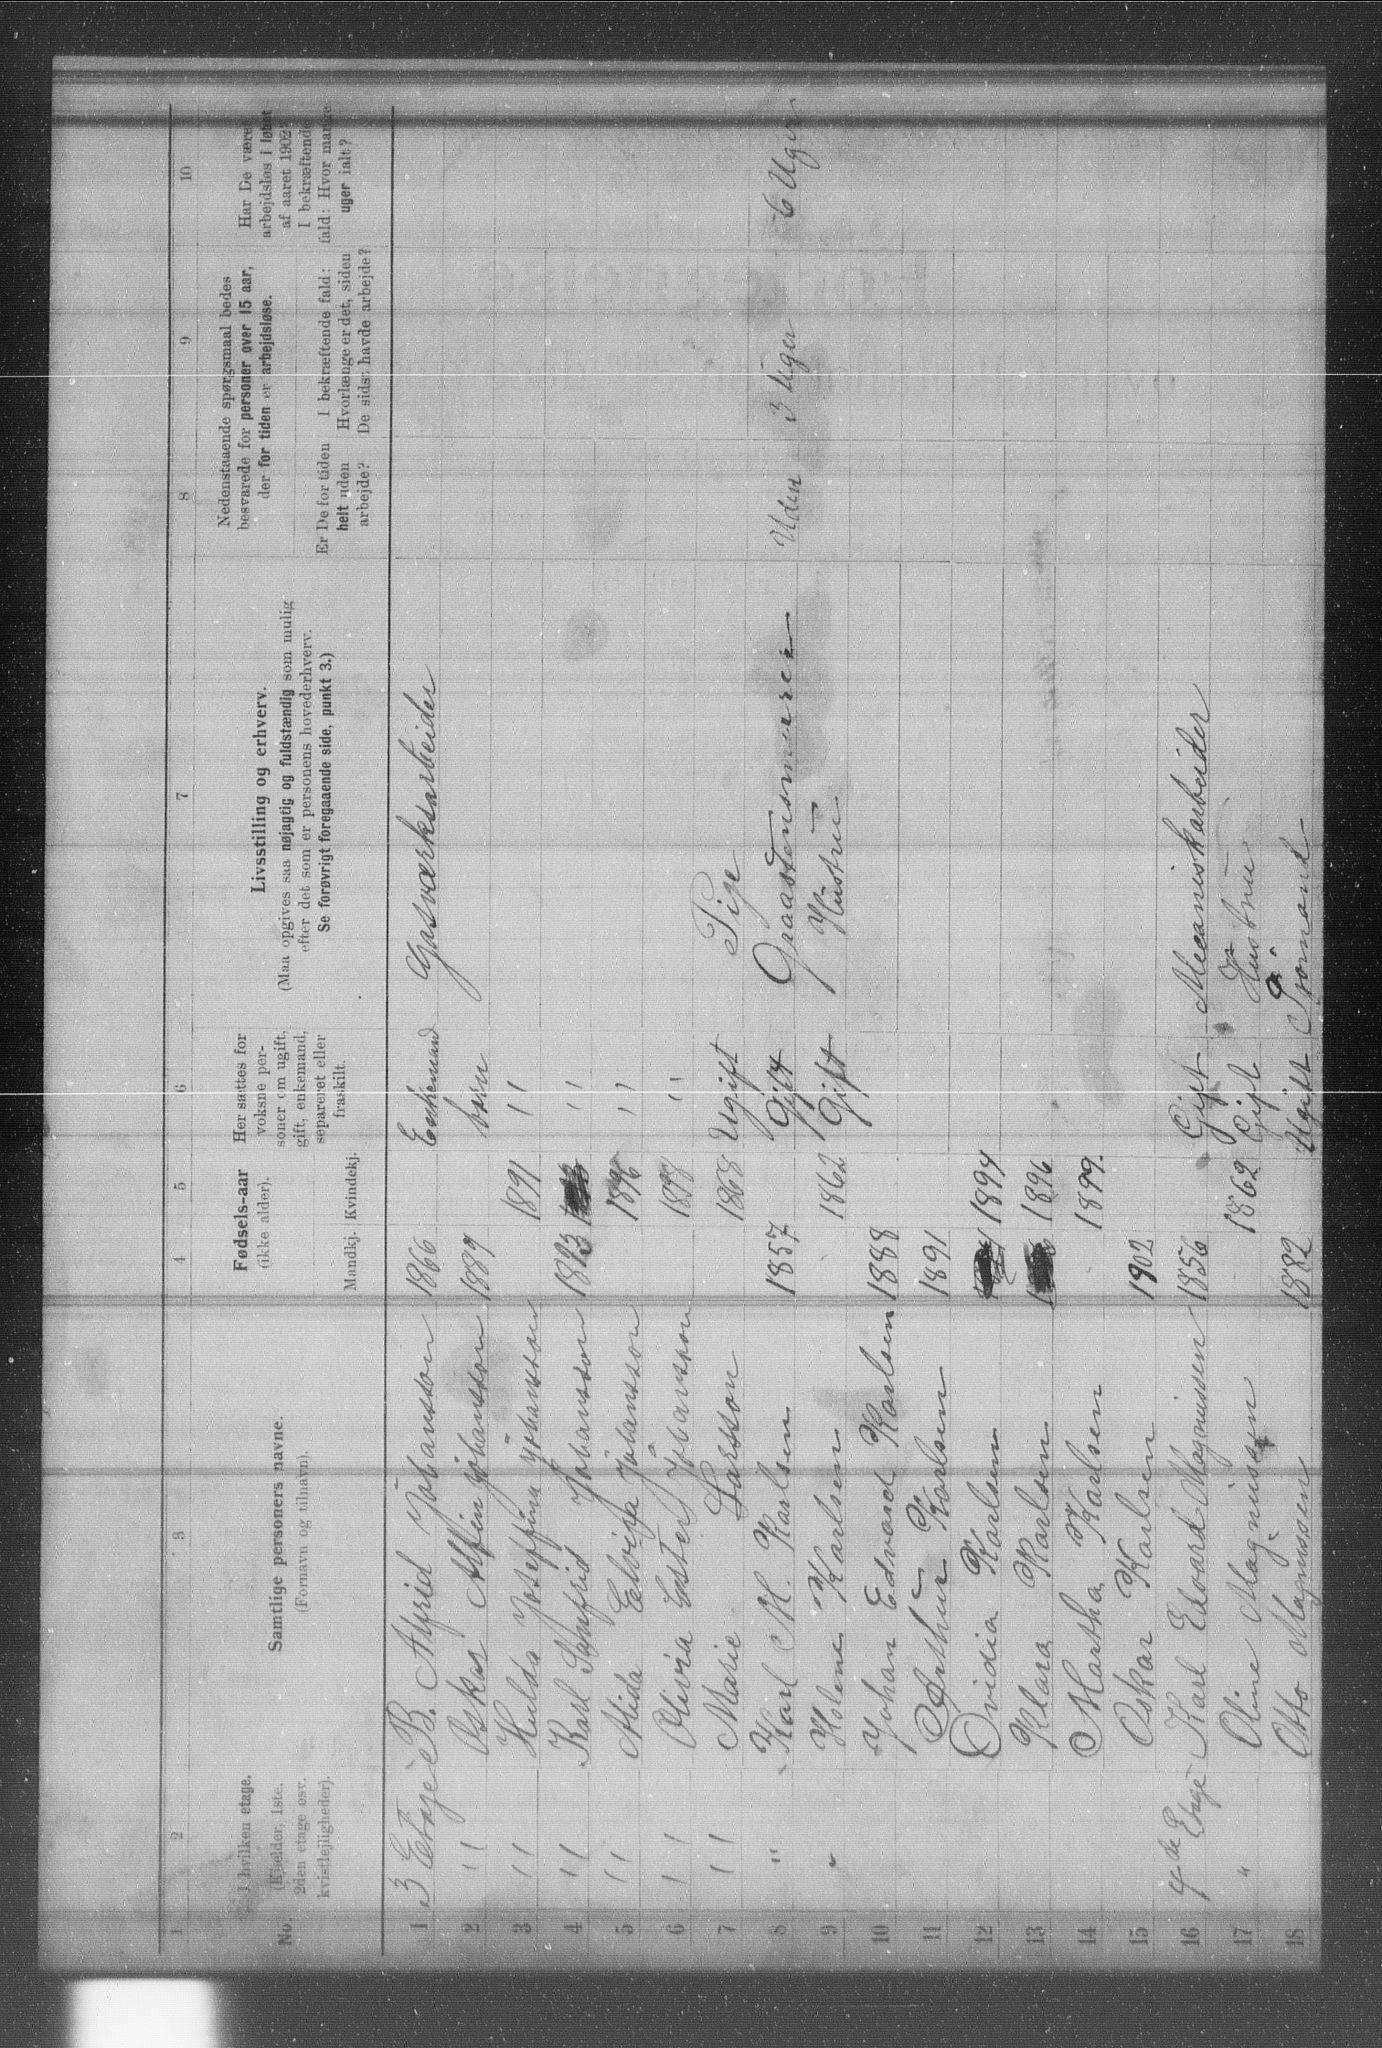 1 2 3 4 5 6 7 8 9 10
No. I hvilken etage. (Kjelder, 1ste, 2den etage osv. kvistlejligheder). Samtlige personers navne. (Fornavn og tilnavn). Fødsels-aar (ikke alder). Mandkj. Kvindekj. Her sættes for voksne personer om ugift, gift, enkemand, separeret eller fraskilt. Livsstilling og erhverv. (Maa opgives saa nøjagtig og fuldstændig som mulig efter det som er personens hovederhverv. Se forøvrigt foregaaende side, punkt 3.)
Nedenstaaende spørgsmaal bedes besvarede for personer over 15 aar, der for tiden er arbejdsløse.
Er De for tiden helt uden arbejde? I bekræftende fald: Hvorlænge er det, siden De sidst havde arbejde?
Har De været arbejdsløs i løbet af aaret 1902? I bekræftende fald: Hvor mange uger ialt?
1 3 Etage B. Alfrid Johansson 1866 Enkemand Gasværksarbeider
2 " Oskar Alfin Johansson 1889 barn
3 " Hulda Joseffina Johansson 1891 "
4 " Karl Johansson 1893 "
5 " Alida Elviga Johansson 1896 "
6 " Olivia Ester Johansson 1898 "
7 " Marie Larsson 1868 Ugift Pige
8 " Karl M. Karlsen 1857 Gift Graastensmurer Uden 3 Uger 6 Uger
9 " Helene Karlsen 1862 Gift Hustru
10 Johan Edvard Karlsen 1888
11 Arthur Karlsen 1891
12 Ovidia Karlsen 1894
13 Klara Karlsen 1896
14 Martha Karlsen 1899
15 Oskar Karlsen 1902
16 4de Etage Karl Edvard Magnussen 1856 Gift Mecaniskarbeider
17 " Oline Magnussen 1862 Gift Hustru
18 Otto Magnussen 1882 Ugift